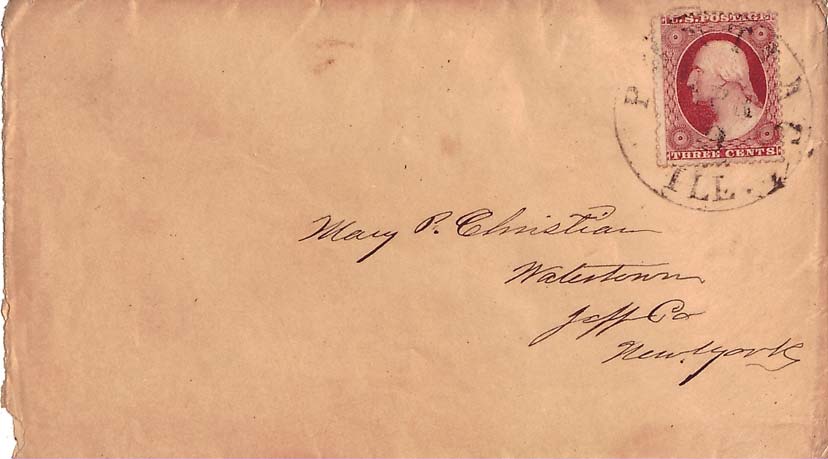 U.S. POSTAGE
THREE CENTS
ILL.
Mary P. Christian
Watertown
Jeff Co
New York